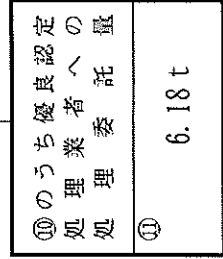 ⑩のうち優良認定
処理業者への
処理委託量
⑪
6.18 t